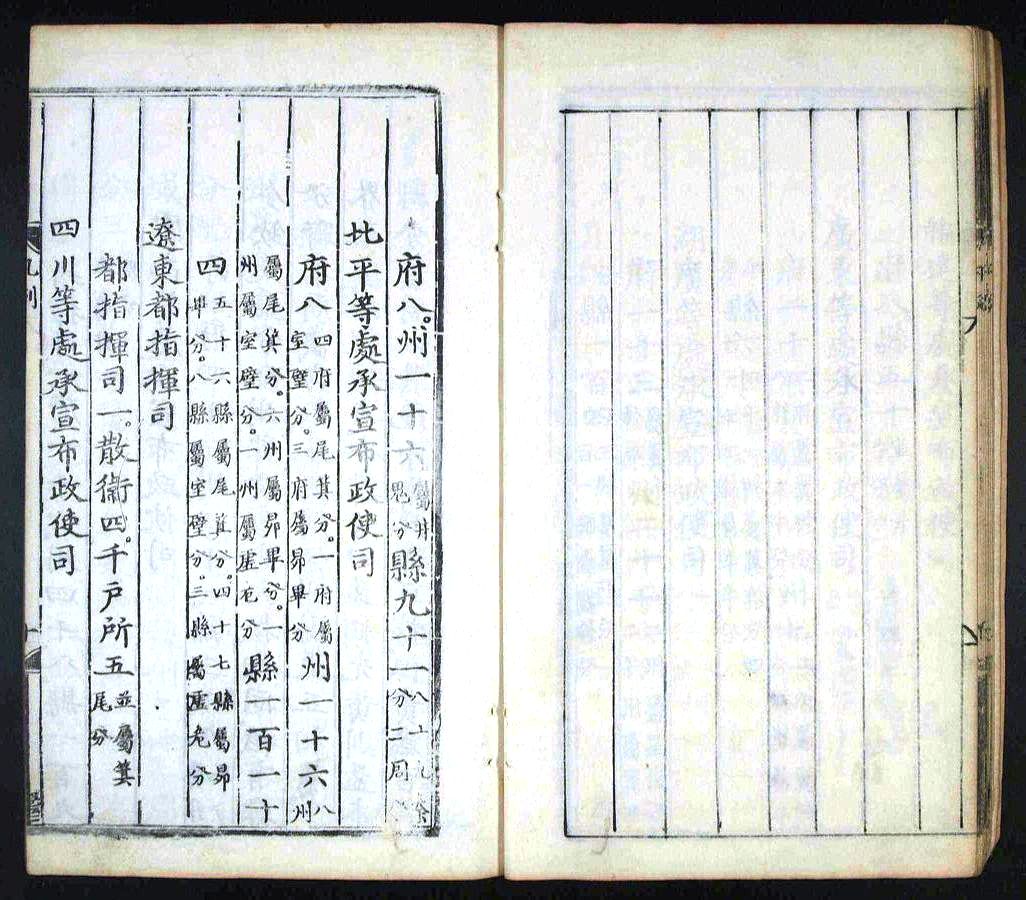 府八。州一十六屬井鬼分縣九十一八十九
分二同分
北平等處承宣布政使司
府八四府屬尾箕分。一府屬室壁分。三府屬昴畢分州一十六八州
屬尾箕分。六州屬昴畢分。州屬室壁分。一州屬虛危分縣一百一十
四五十六縣屬尾箕分。四十七縣屬昴畢分。八縣屬室壁分。三縣屬虛危分
遼東都指揮司
都指揮司一。散衛四。千戶所五並屬箕尾分
四川等處承宣布政使司